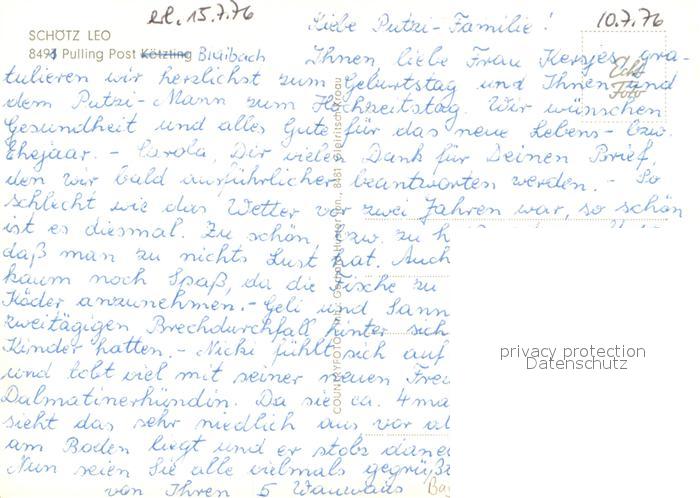 erl. 15.7.76
10.7.76
Liebe Putzi-Familie!
SCHÖTZ LEO
8491 Pulling Post Kötzting Blaibach
Echt Foto
Ihnen, liebe Frau Kersjes, gra-
tulieren wir herzlichst zum Geburtstag und Ihnen und
dem Putzi-Mann zum Hochzeitstag. Wir wünschen
Gesundheit und alles Gute für das neue Lebens- bzw.
Ehejaar. - Carola, Dir vielen Dank für Deinen Brief,
den wir bald ausführlicher beantworten werden. - So
schlecht wie das Wetter vor zwei Jahren war, so schön
ist es diesmal. Zu schön, bzw. zu h
daß man zu nichts Lust hat. Auch
kaum noch Spaß, da die Fische zu
Köder anzunehmen. - Geli und Sann
zweitägigen Brechdurchfall hinter sich
Kinder hatten. - Nicki fühlt sich auf
und tobt viel mit seiner neuen Freu
Dalmatinerhündin. Da sie ca. 4 ma
sieht das sehr niedlich aus vor al
am Boden liegt und er stolz dane
Nun seien Sie alle vielmals gegrüß
von Ihren 5 Wauwaus
COUNTRYFOTO
privacy protection
Datenschutz